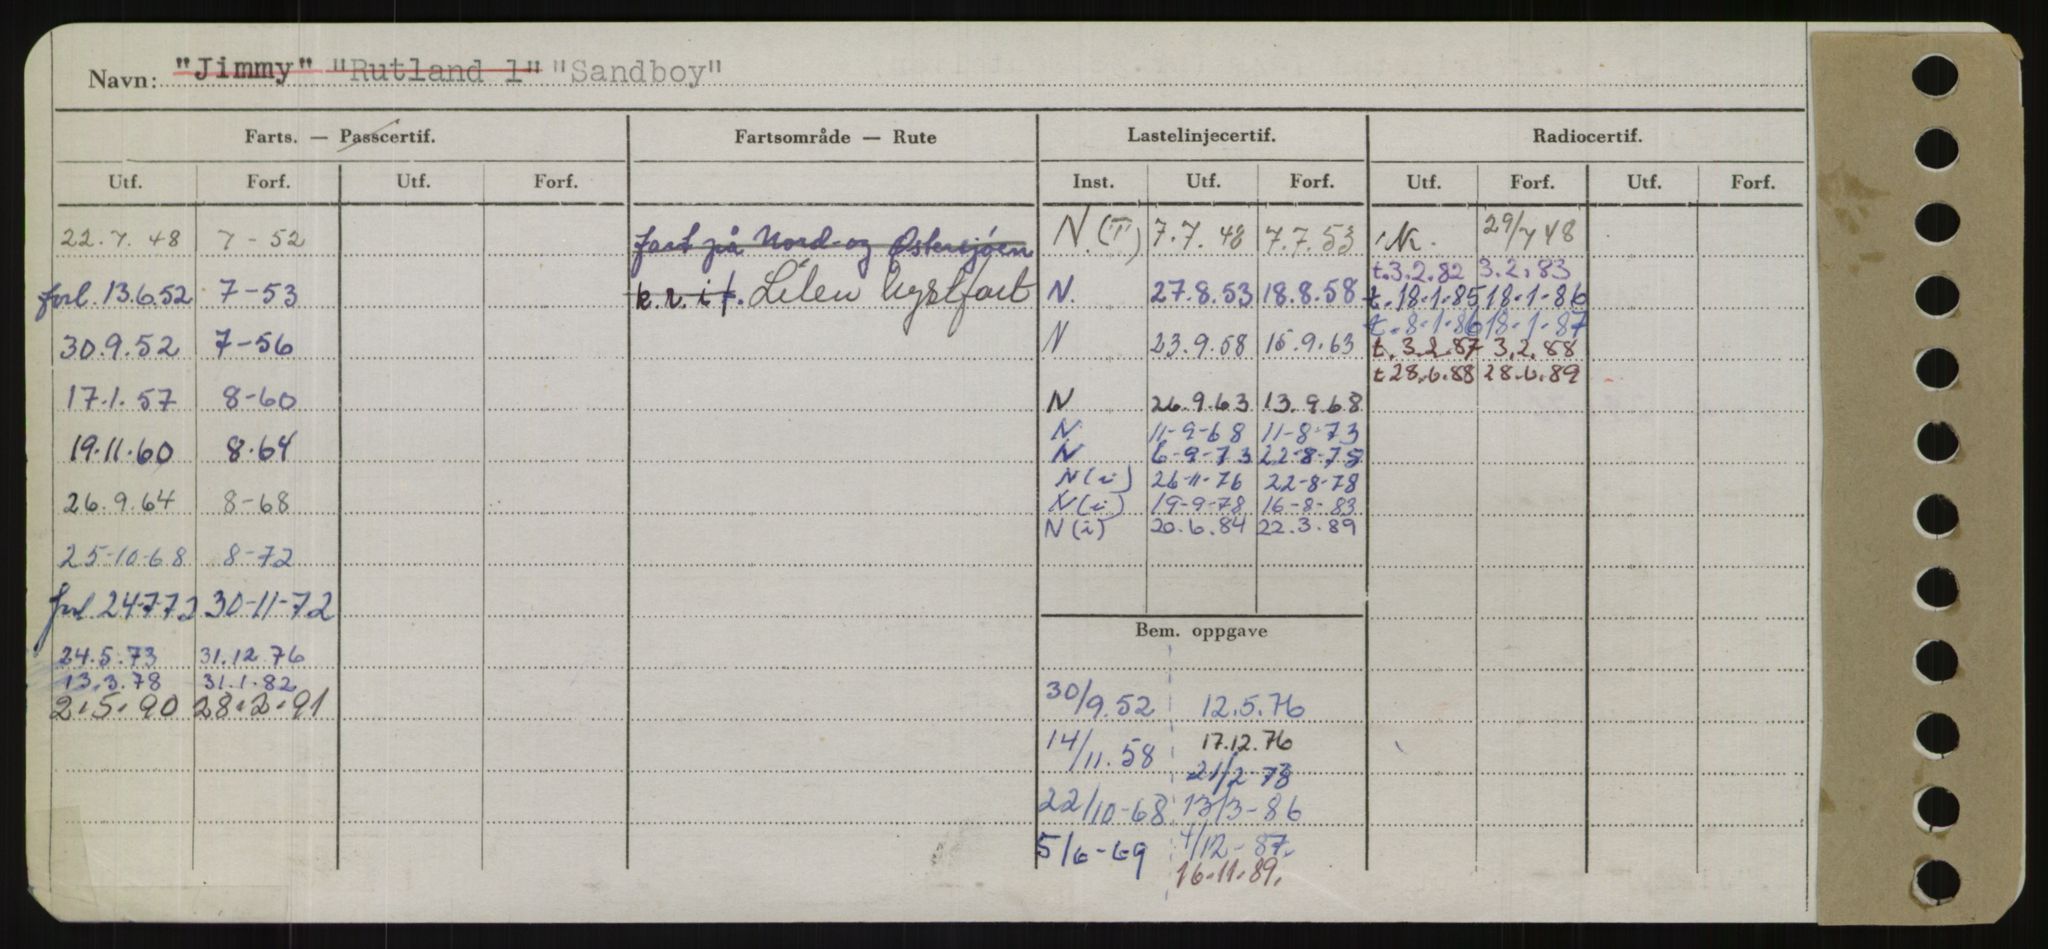 Navn: "Jimmy" "Rutland 1" "Sandboy"
Farts. — Passcertif. Fartsområde — Rute Lastelinjecertif. Radiocertif.
Utf. Forf. Utf. Forf. Inst. Utf. Forf. Utf. Forf. Utf. Forf.
22.7.48 7-52
forl. 13.6.52 7-53
30.9.52 7-56
17.1.57 8-60
19.11.60 8.64
26.9.64 8-68
25-10-68 8-72
forl 24-7-72 30-11-72
24.5.73 31.12.76
13.3.78 31.1.82
2.5.90 28.2.91
fart på Nord- og Østersjøen
k.r.i.f. Liten kystfart
N. (I) 7.7.48 7.7.53
N. 27.8.53 18.8.58
N 23.9.58 15.9.63
N 26.9.63 13.9.68
N 11-9-68 11-8-73
N 6-9-73 22-8-75
N(i) 26-11-76 22-8-78
N(i) 19-9-78 16-8-83
N(i) 20.6.84 22.3.89
Nk. 29/7 48
t.3.2.82 3.2.83
t.18.1.85 18.1.86
t.8.1.86 18.1.87
t.3.2.87 3.2.88
t 28.6.88 28.6.89
Bem. oppgave
30/9.52 12.5.76
14/11.58 17.12.76
21/2-78
22/10-68 13/3-86
5/6-69 4/12-87
16.11.89.